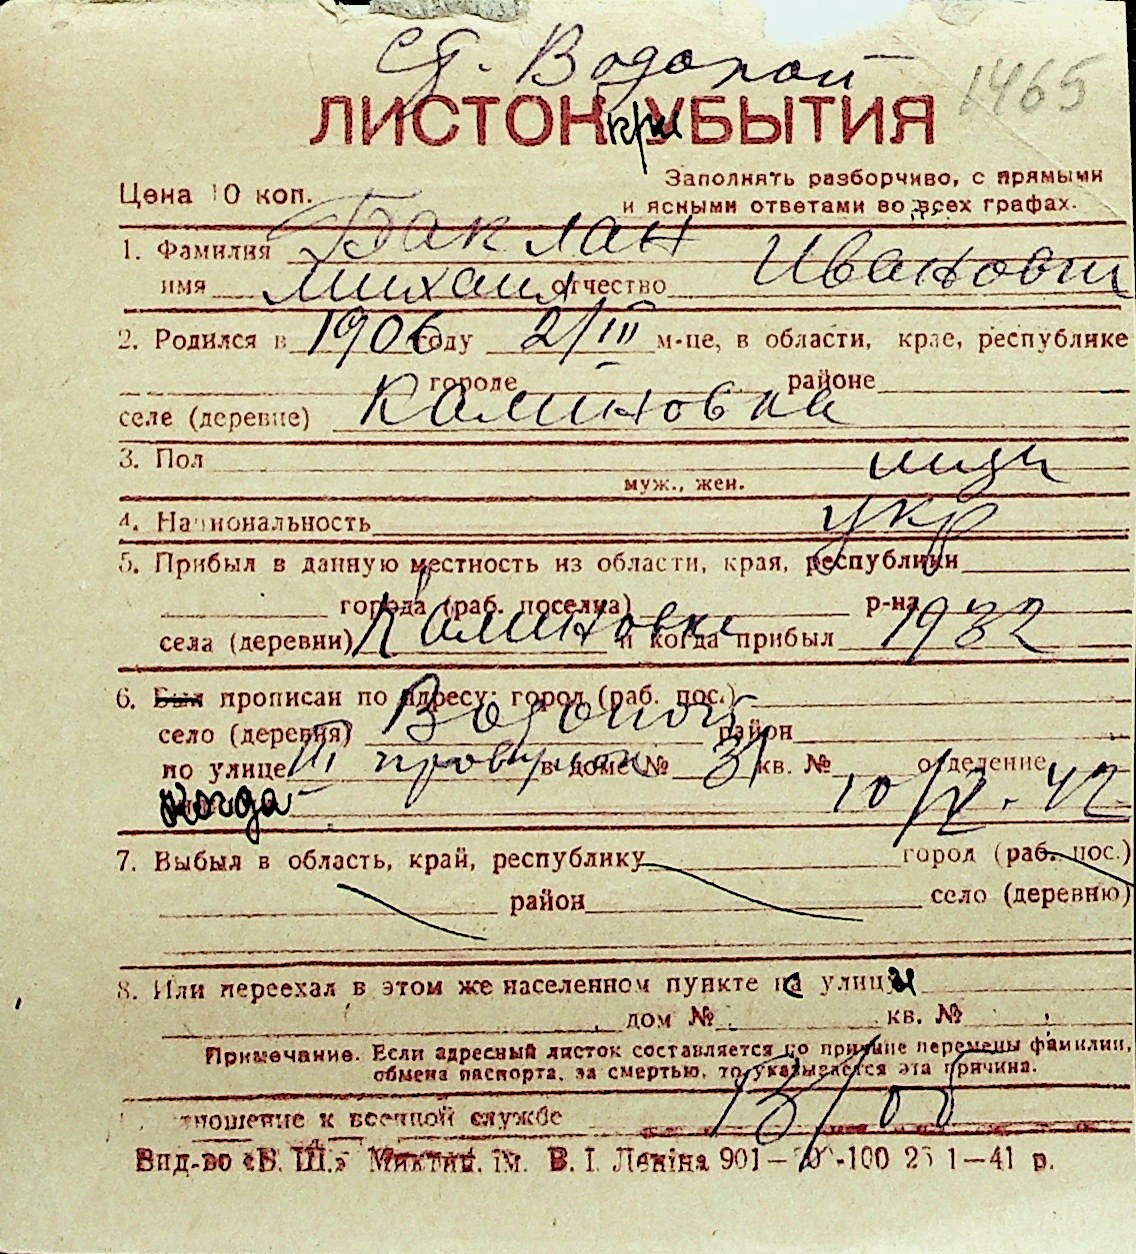 ст. Водопой
1465
ЛИСТОК при УБЫТИЯ
Цена 10 коп.
Заполнять разборчиво, с прямыми
и ясными ответами во всех графах.
1. Фамилия Баклан
имя Михаил отчество Иванович
2. Родился в 1906 году 2/III м-це, в области, крае, республике
городе районе
селе (деревне) Калиновка
3. Пол
муж., жен.
4. Национальность укр
5. Прибыл в данную местность из области, края, республики
города (раб. поселка) р-на
села (деревни) Калиновки и когда прибыл 1932
6. Был прописан по адресу: город (раб. пос.)
село (деревня) Водопой район
по улице III в доме № 31 кв. № отделение
когда 10/IV. 42
7. Выбыл в область, край, республику город (раб. пос.)
район село (деревню)
8. Или переехал в этом же населенном пункте с улицы
дом № кв. №
Примечание. Если адресный листок составляется по причине перемены фамилии,
обмена паспорта, за смертью, то указывается эта причина.
тношение к военной службе
Вид-во «Б. Ш.» ім. В. І. Леніна 901— -100 25 1—41 р.